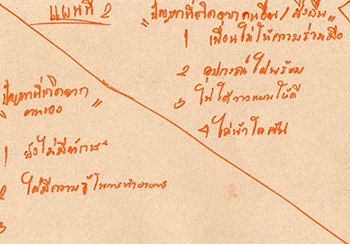 แผนที่ 2
"ปัญหาที่เกิดจากคนอื่น / สิ่งอื่น"
1 เพื่อนไม่ให้ความร่วมมือ
2 อุปกรณ์ไม่พร้อม
3 ไม่ได้วางแผนให้ดี
4 ไม่เข้าใจกัน
"ปัญหาที่เกิดจากตนเอง"
1 ยังไม่มีทักษะ
2 ไม่มีความรู้ในการทำอาหาร
3